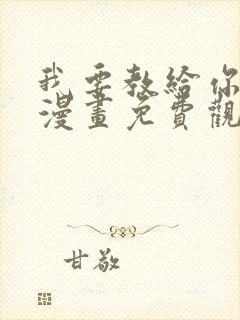 我要教给你
漫畫免費觀
甘敬